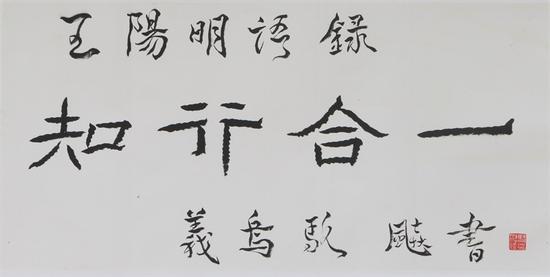 王陽明語錄
知行合一
義烏 書